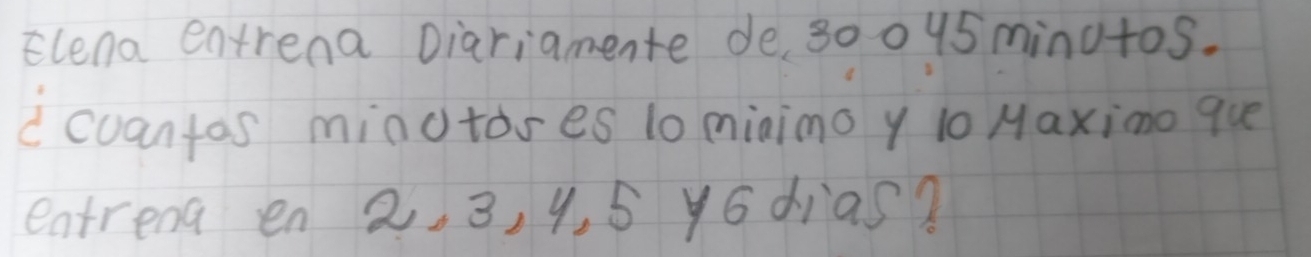 Elena entrena Diariamente de 30 o 45 minutos.
¿cuantos minutos es lo minimo y lo Maximo que
entrena en 2, 3, 4, 5 y 6 dias?